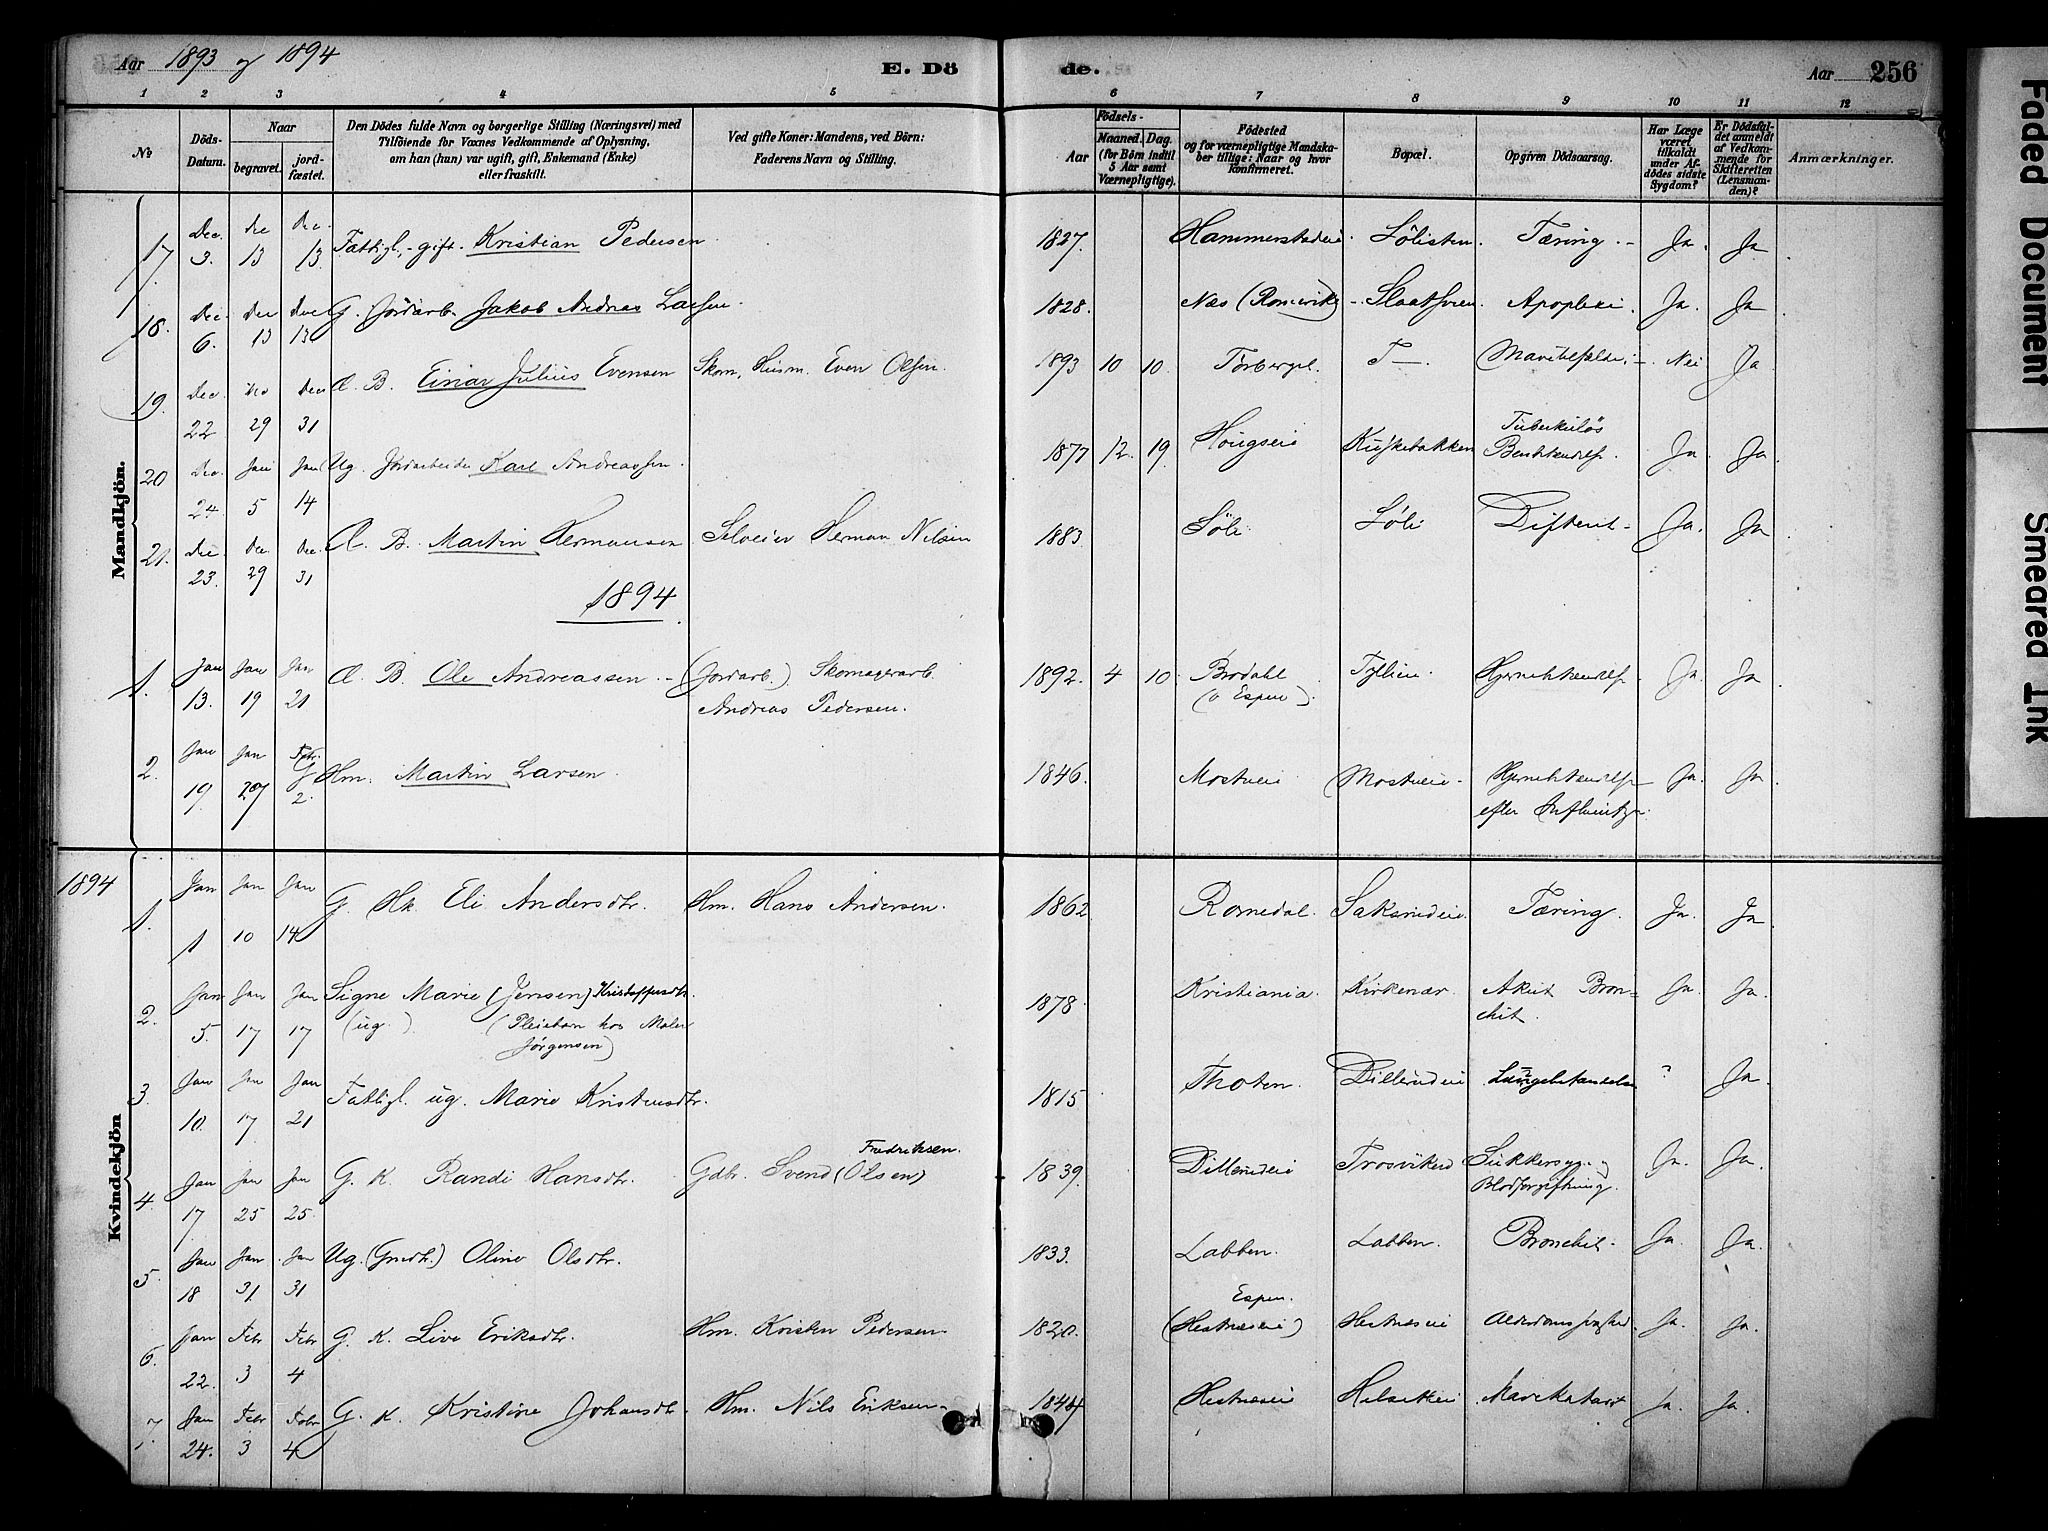 Aar 1893 og 1894
E. Dö
de.
Aar 256
1 2 3 4 5 6 7 8 9 10 11 12
No.
Döds-
Datum.
Naar
begravet.
jord-
fæstet.
Den Dödes fulde Navn og borgerlige Stilling (Næringsvei) med
Tilföiende for Voxnes Vedkommende af Oplysning,
om han (hun) var ugift, gift, Enkemand (Enke)
eller fraskilt.
Ved gifte Koner: Mandens, ved Börn:
Faderens Navn og Stilling.
Födsels-
Aar
Maaned. Dag.
(for Börn indtil
5 Aar samt
Værnepligtige).
Födested
og for værnepligtige Mandska-
ber tillige: Naar og hvor
konfirmeret.
Bopæl.
Opgiven Dödsaarsag.
Har Læge
været
tilkaldt
under Af-
dödes sidste
Sygdom?
Er Dödsfal-
det anmeldt
af Vedkom-
mende for
Skifteretten
(Lensman-
den)?
Anmærkninger.
Mandkjön.
17 Dec. 3. Dec 13 Dec. 13. Fattigl., gift. Kristian Pedersen 1827. Hammerstadeie. Lölisten. Tæring. Ja. Ja
18. Dec 6. Dec 13 Dec 13 G. Jordarb. Jakob Andreas Larsen 1828. Næs (Romerike) Slaatsveen. Apoplexi Ja. Ja
19. Dec 22 Dec 29 Dec 31 B. Einar Julius Evensen Skom. Husm. Even Olsen. 1893 10 10. Torbergpl. T— Nei Ja
20 Dec. 24. Jan 5 Jan 14 Ug. Jordarbeider Karl Andreassen. 1877 12. 19. Hougseie Kuskebakken Tuberkulös
Ja Ja
21. Dec. 23. Dec 29 Dec. 31 B. Martin Hermansen Selveier Herman Nilsen 1883 Löli Löli Difterit Ja. Ja
1894
1. Jan 13. Jan 19 Jan 21 B. Ole Andreassen. (Jordarb.) Skomagerarb.
Andreas Pedersen. 1892. 4 10. Brodahl
(v Espen). Hjernebetændelse Ja Ja
2. Jan 19. Jan 27 Febr. 2. Hm. Martin Larsen. 1846. Mostueie Mostueie Hjernebetændelse
efter Influentza Ja Ja
1894
Kvindekjön
1. Jan 1 Jan 10 Jan 14 G. Hk. Eli Andersdtr. Hm. Hans Andersen. 1862 Romedal. Saksrudeie. Tæring. Ja. Ja
2. Jan 5. Jan 17 Jan 17 Signe Marie (Jensen) Kristoffersdtr.
(ug.) (Pleiebarn hos Maler
Jörgensen) 1878. Kristiania. Kirkenær. Akut Bron-
chit. Ja. Ja.
3. Jan 10. Jan 17 Jan 21 Fattigl. ug. Marie Kristensdtr. 1815 Thoten. Dillerudeie Lungebetændelse ? Ja.
4 Jan 17 Jan 25 Jan 25. G. K. Randi Hansdtr. Gdbr. Svend (Olsen) Fredriksen. 1839. Dillerudeie Trosviken Sukkersyge og
Blodforgiftning. Ja. Ja.
5. Jan 18 Jan 31. Jan 31 Ug. (Gmdtr.) Oline Olsdtr. 1833. Labben. Labben. Bronchit. Ja. Ja.
6. Jan 22. Febr 3 Febr 4 G. K. Live Eriksdtr. Hm. Kristen Pedersen. 1820. Espen.
(Hestnæseie) Hestnæseie Alderdomssvaghed. Ja. Ja.
7. Jan 24. Febr 3 Febr 4 G. K. Kristine Johansdtr. Hm. Nils Eriksen 1844 Hestnæseie Helsetheie Mavekatarrh Ja. Ja.
Faded Document
Smeared Ink